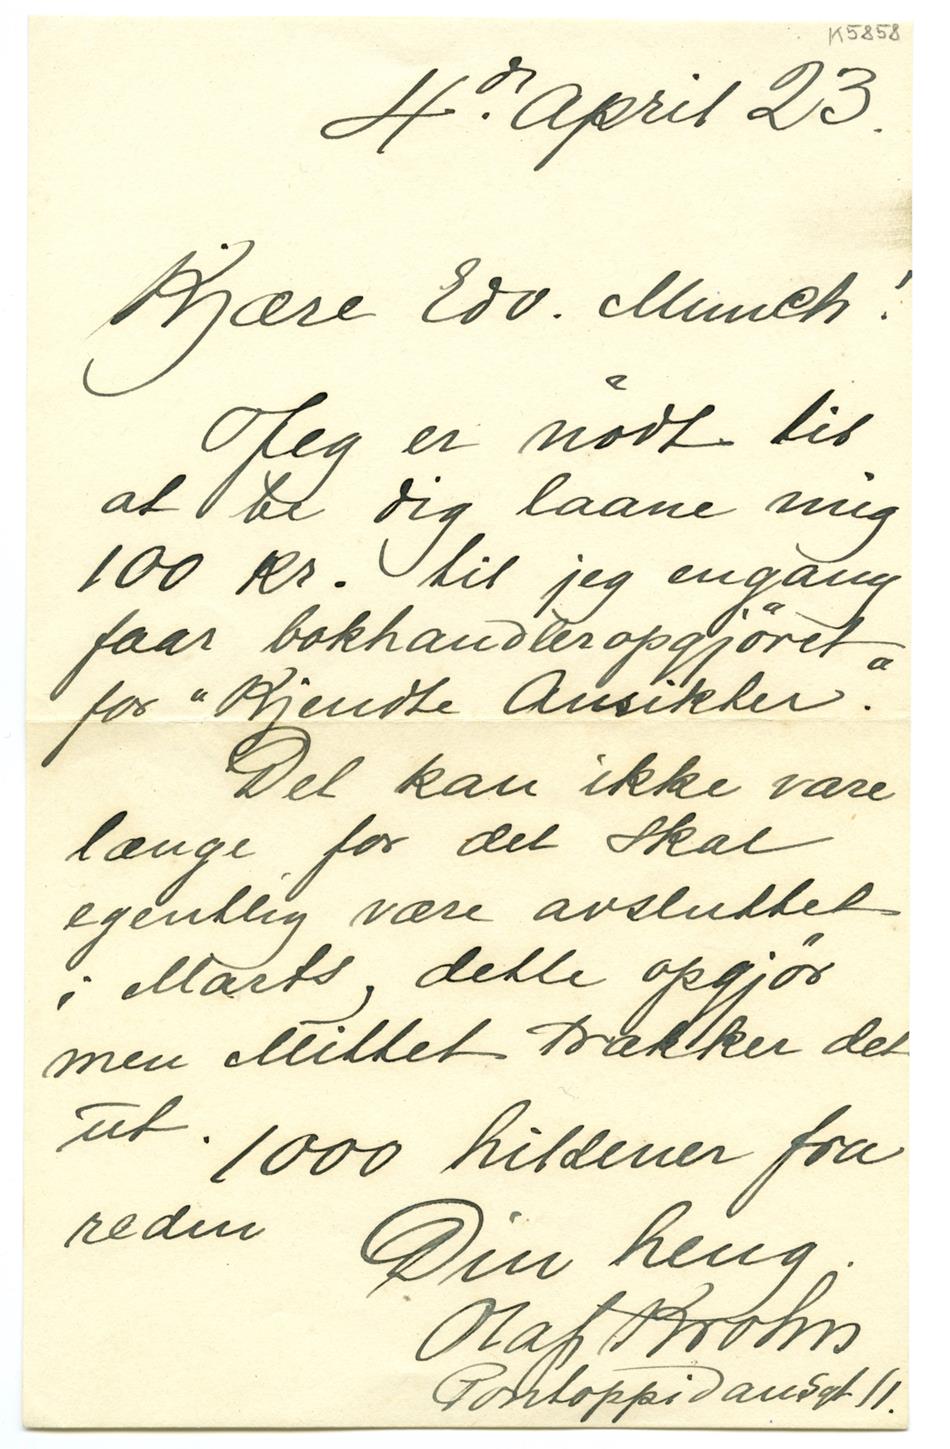 K5858
4de. April 23.
Kjære Edv. Munch!
Jeg er nödt til
at be dig laane mig
100 Kr. til jeg engang
faar bokhandleropgjöret
for "Kjendte Ansikter".
Det kan ikke vare
længe for det skal
egentlig være avsluttet
i Marts, dette opgjör
men Mittet trækker det
ut. 1000 hilsener fra
reden
Din heng.
Olaf Krohn
Pontoppidansgt 11.